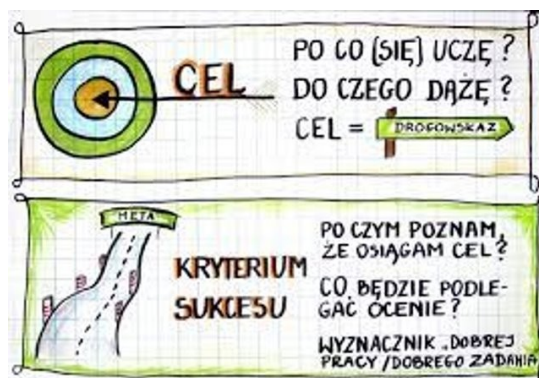 CEL
PO CO (SIĘ) UCZĘ?
DO CZEGO DĄŻĘ?
CEL =
DROGOWSKAZ
META
KRYTERIUM
SUKCESU
PO CZYM POZNAM,
ŻE OSIĄGAM CEL?
CO BĘDZIE PODLE-
GAĆ OCENIE?
WYZNACZNIK DOBREJ
PRACY/DOBREGO ZADANIA